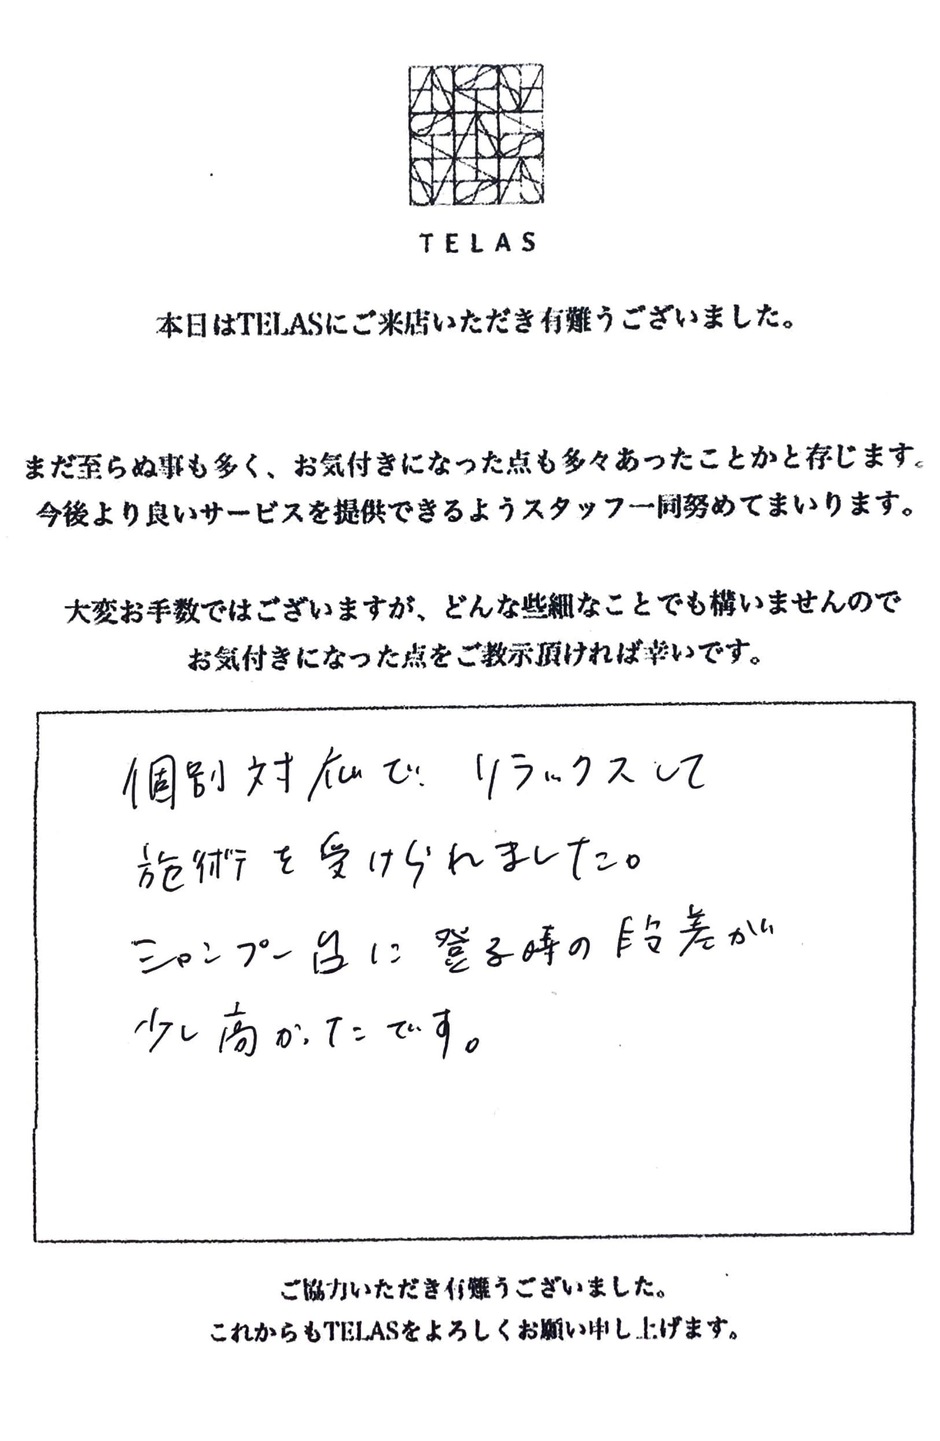 TELAS
本日はTELASにご来店いただき有難うございました。
まだ至らぬ事も多く、お気付きになった点も多々あったことかと存じます。
今後より良いサービスを提供できるようスタッフ一同努めてまいります。
大変お手数ではございますが、どんな些細なことでも構いませんので
お気付きになった点をご教示頂ければ幸いです。
個別対応で、リラックスして
施術を受けられました。
シャンプー台に登る時の段差が
少し高かったです。
ご協力いただき有難うございました。
これからもTELASをよろしくお願い申し上げます。